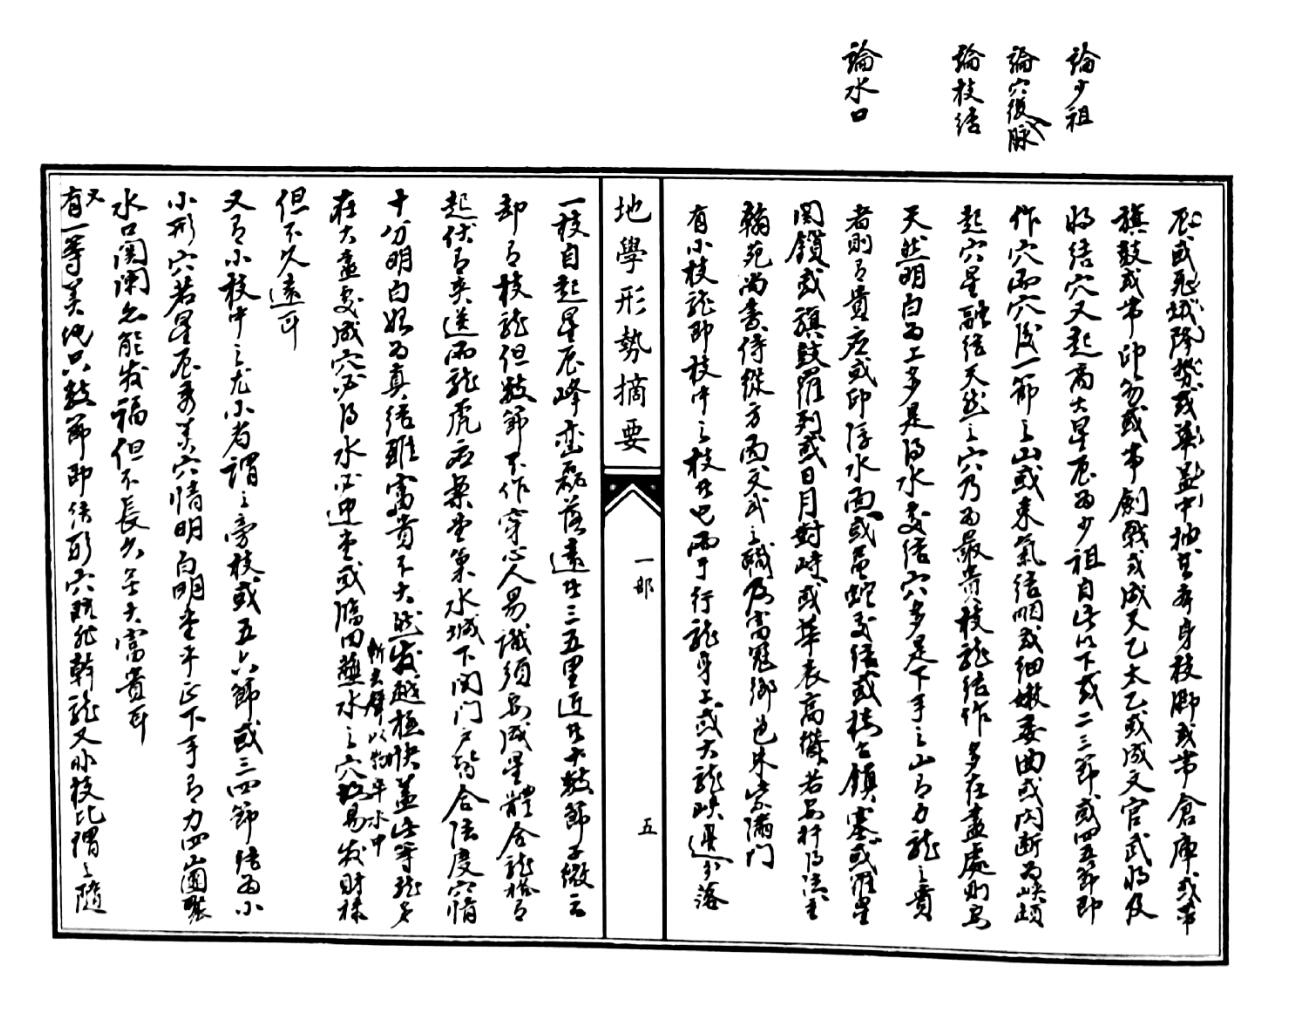 論少祖
論穴後脉
論枝結
論水口
辰或飛蛾降勢或華蓋中抽其本身枝脚或帶倉庫或帶
旗鼓或帶印笏或帶劍戟或成天乙太乙或成文官武將及
將結穴又起高大星辰為少祖自此以下或二三節或四五節即
作穴而穴後一節之山或束氣結咽或細嫩委曲或閃斷為峽
起穴星融結天然之穴乃為最貴枝龍結作多在盡處則要
天然明白為工多是得水交結穴多是下手之山有力龍之貴
者則有貴应或印浮水面或龜蛇交结或塞或羅星
関鎖或旗鼓羅列或日月對峙或華表高攢若要扦得法主
翰苑尚書侍從方面文武之職及富冠鄉邑朱紫滿門
有小枝龍即枝中之枝也而于行龍身上或大龍峽邊分落
地學形勢摘要
一部
五
一枝自起星辰峰巒磊落遠廿三五里近廿十數節子微云
却有枝龍但數節不作穿心人易識須要成星體合龍格有
起伏有夾送而龍虎应案堂氣水城下関门户皆合法度穴情
十分明白始为真结雖富貴不大然发越極快盖此等龍多
在大盡處成穴必得水必迎堂或臨田蘸水之穴故易发財祿
斬关
以物半水中
但不久遠耳
又有小枝中之尤小者謂之旁枝或五六節或三四節結为小
小形穴若星辰秀美穴情明白明堂平正下手有力四山團聚
水口関闌亦能发福但不長久無大富貴耳
又有一等美地只數節即结形穴既非幹龍又非枝比謂之隨